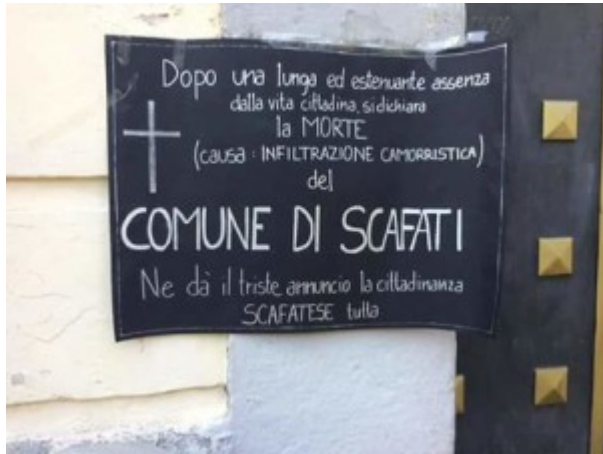 Dopo una lunga ed estenuante assenza
dalla vita cittadina, si dichiara
la MORTE
(causa: INFILTRAZIONE CAMORRISTICA)
del
COMUNE DI SCAFATI
Ne dà il triste annuncio la cittadinanza
SCAFATESE tutta